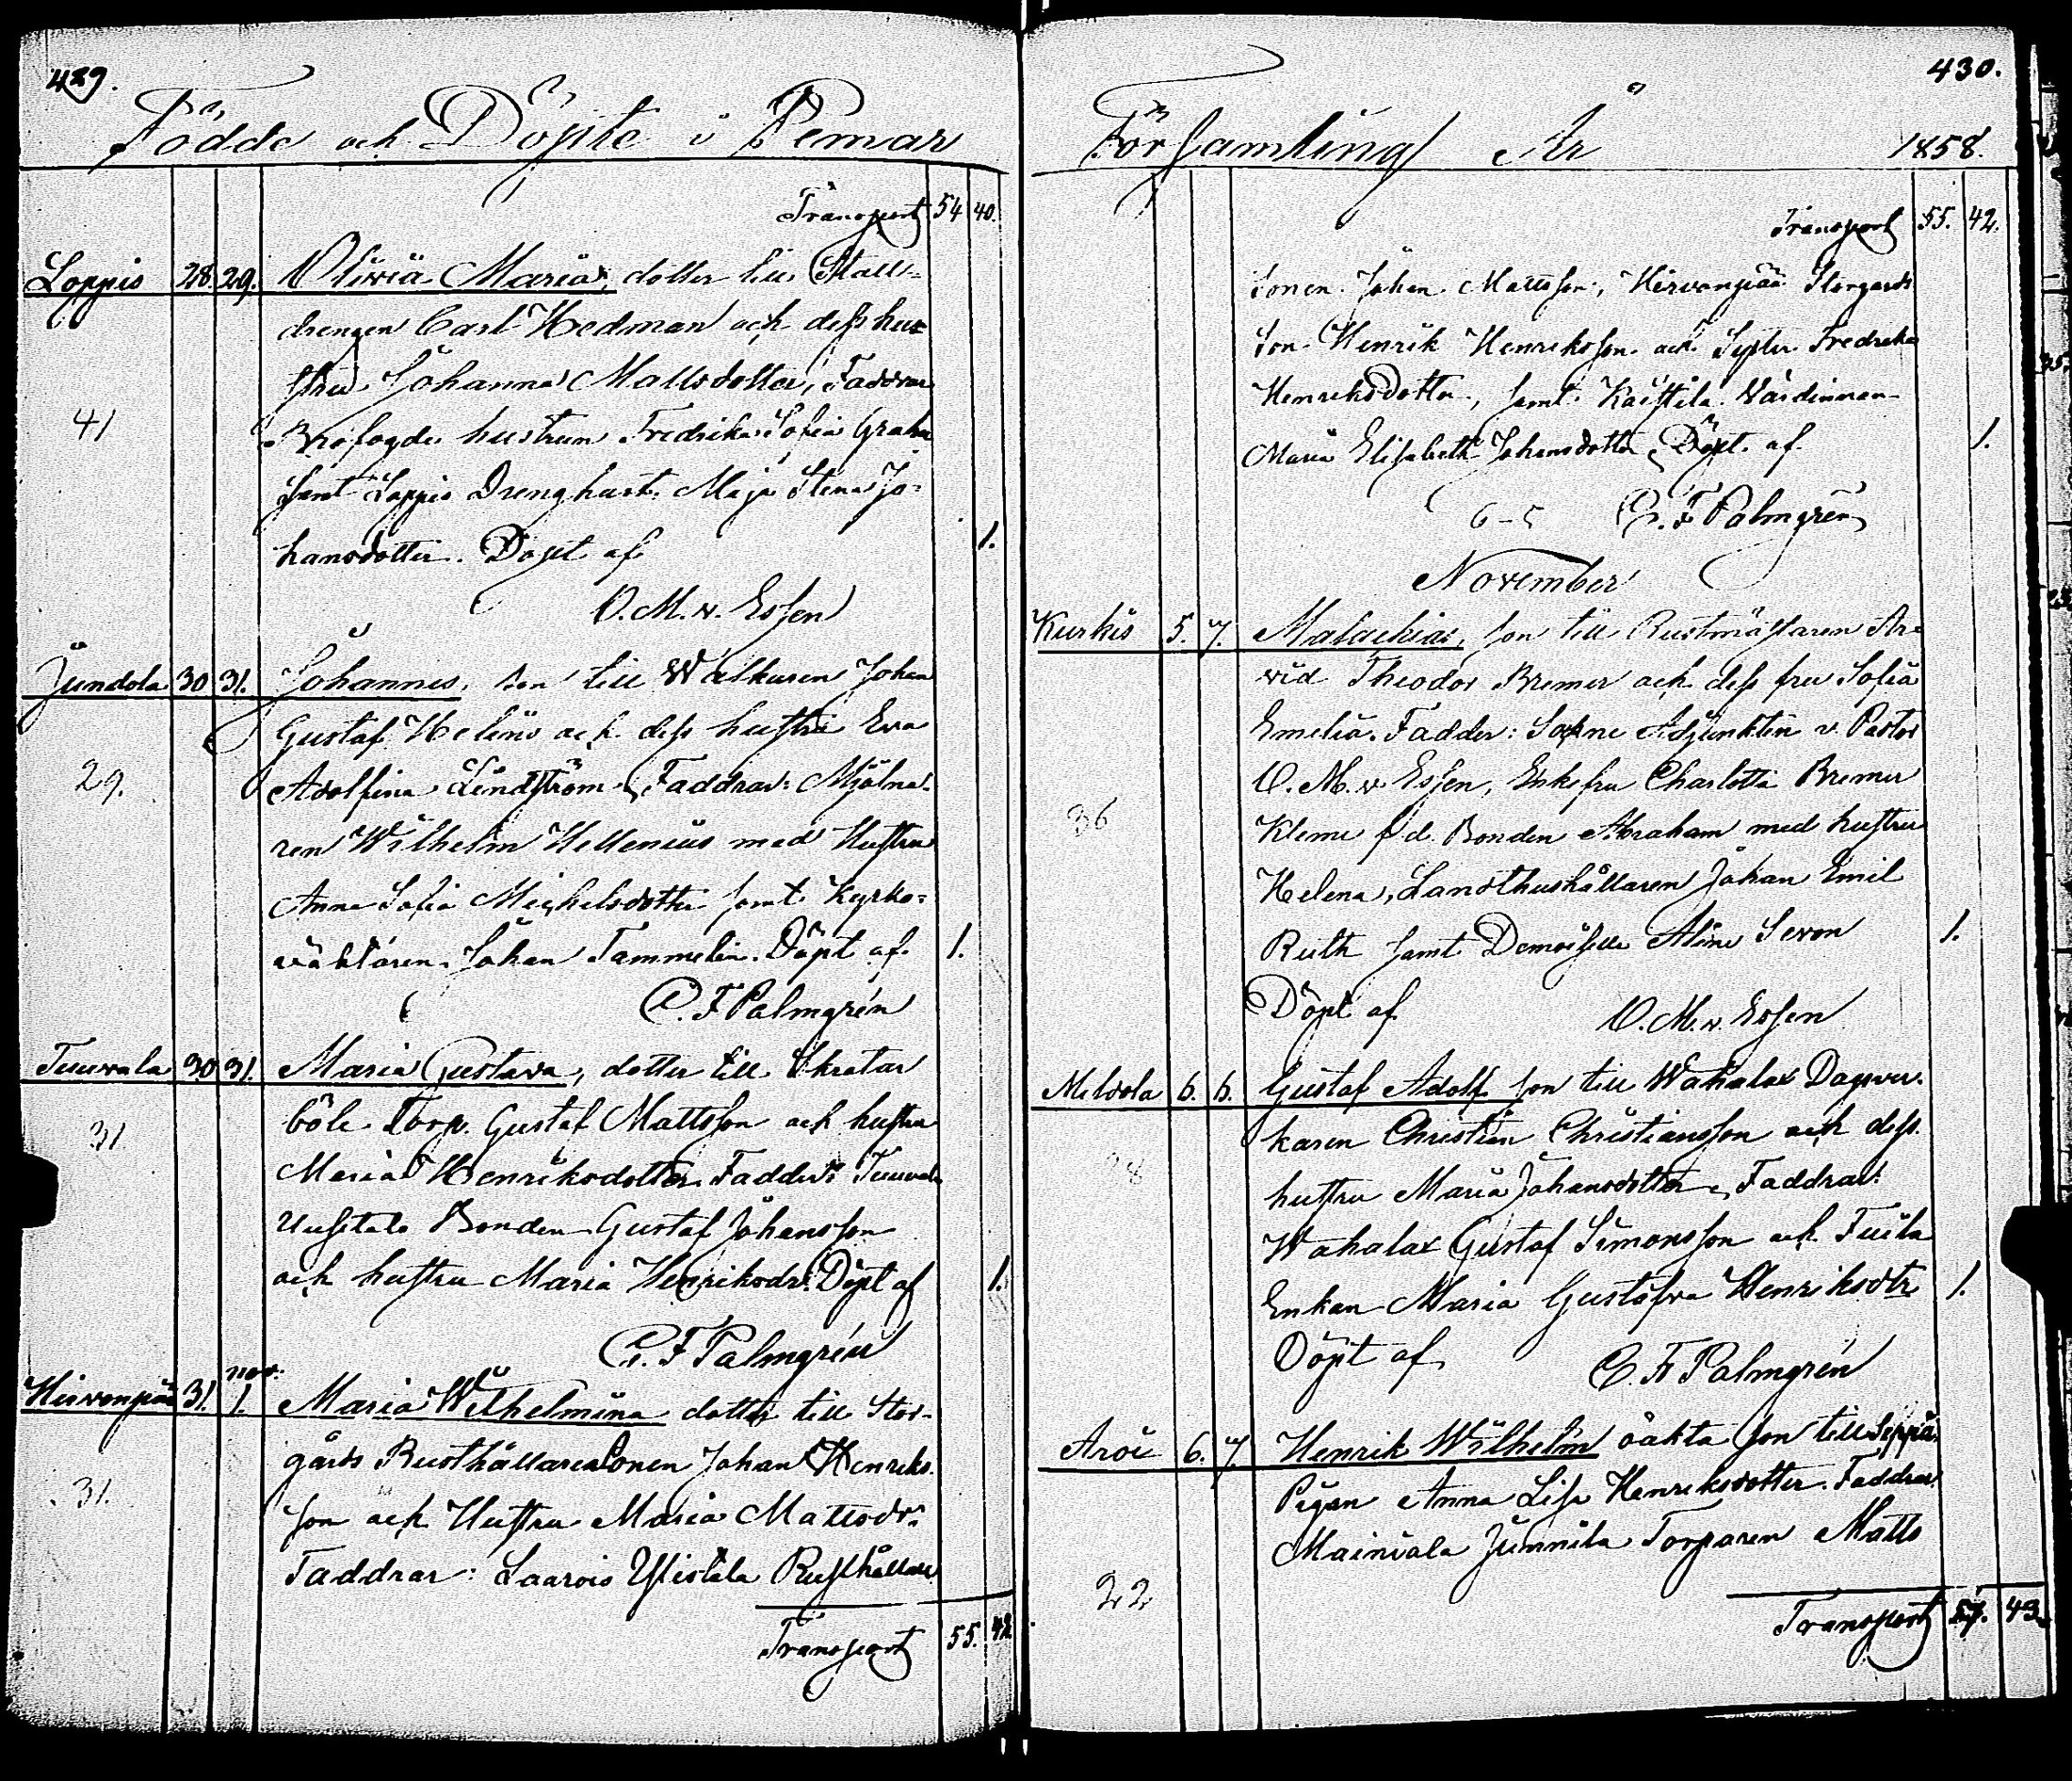 429.
Födde och Döpte i Pemar
Transport 54 40.
Loppis 28. 29. Oliwia Maria, dotter till Stall-
drengen Carl Hedman och dess hu-
stru Johanna Mattsdotter, Faddrar
41
Brofogde hustrun Fredrika Sofia Grahn
samt Loppis Drenghust. Maja Stena Jo-
hansdotter. Döpt af 1.
O. M. v. Essen
Jundola 30 31. Johannes, Son till Walkaren Johan
Gustaf Helenius och dess hustru Eva
29.
Adolfina Lindström, Faddrar: Mjölna-
ren Wilhelm Hellenius med Hustru
Anna Sofia Michelsdotter samt Kyrko-
väktaren Johan Tammelin. Döpt af 1.
C. F Palmgrén
Tuuvala 30 31. Maria Gustava, dotter till Skratar
böle Torp. Gustaf Mattsson och hustru
31
Maria Henriksdotter. Fadder: Tuuvala
Uusitalo Bonden Gustaf Johansson
och hustru Maria Henriksdr. Döpt af 1.
C. F Palmgrén
nov.
Hirvonpää 31. 1. Maria Wilhelmina dotter till Stor-
gårds Rusthållaresonen Johan Henriks-
31.
son och Hustru Maria Mattsdr:
Faddrar: Laarois Ylistalo Rusthållare
Transport 55. 42
430.
Församling År 1858.
Transport 55. 42.
sonen Johan Mattsson, Hirvonpää Storgårds
Son Henrik Henriksson och Syster Fredrika
Henriksdotter, samt Kaittila Värdinnan
Maria Elisabeth Johansdotter, Döpt af 1.
6-5 C. F Palmgrén
November
Kurkis 5. 7. Malachias, son till Rustmästaren Ar-
vid Theodor Bremer och dess fru Sofia
Emelia. Fadder: Sockne Adjunkten v. Pastor
O. M. v. Essen, Enkefru Charlotta Bremer
36
Kleme f d. Bonden Abraham med hustru
Helena, Landthushållaren Johan Emil
Ruth samt Demoiselle Aline Sevon 1.
Döpt af O. M. v. Essen
Meldola 6. 6. Gustaf Adolf son till Wahalax Dagsver-
karen Christian Christiansson och dess
28
hustru Maria Johansdotter, Faddrar:
Wahalax Gustaf Simonsson och Tuila
Enkan Maria Gustafva Henriksdtr 1.
Döpt af C. F Palmgrén
Aroi 6. 7. Henrik Wilhelm oäkta son till Seppäs
Pigan Anna Lisa Henriksdotter. Faddrar
Mainiala Junnila Torparen Matts
22
Transport 57. 43.